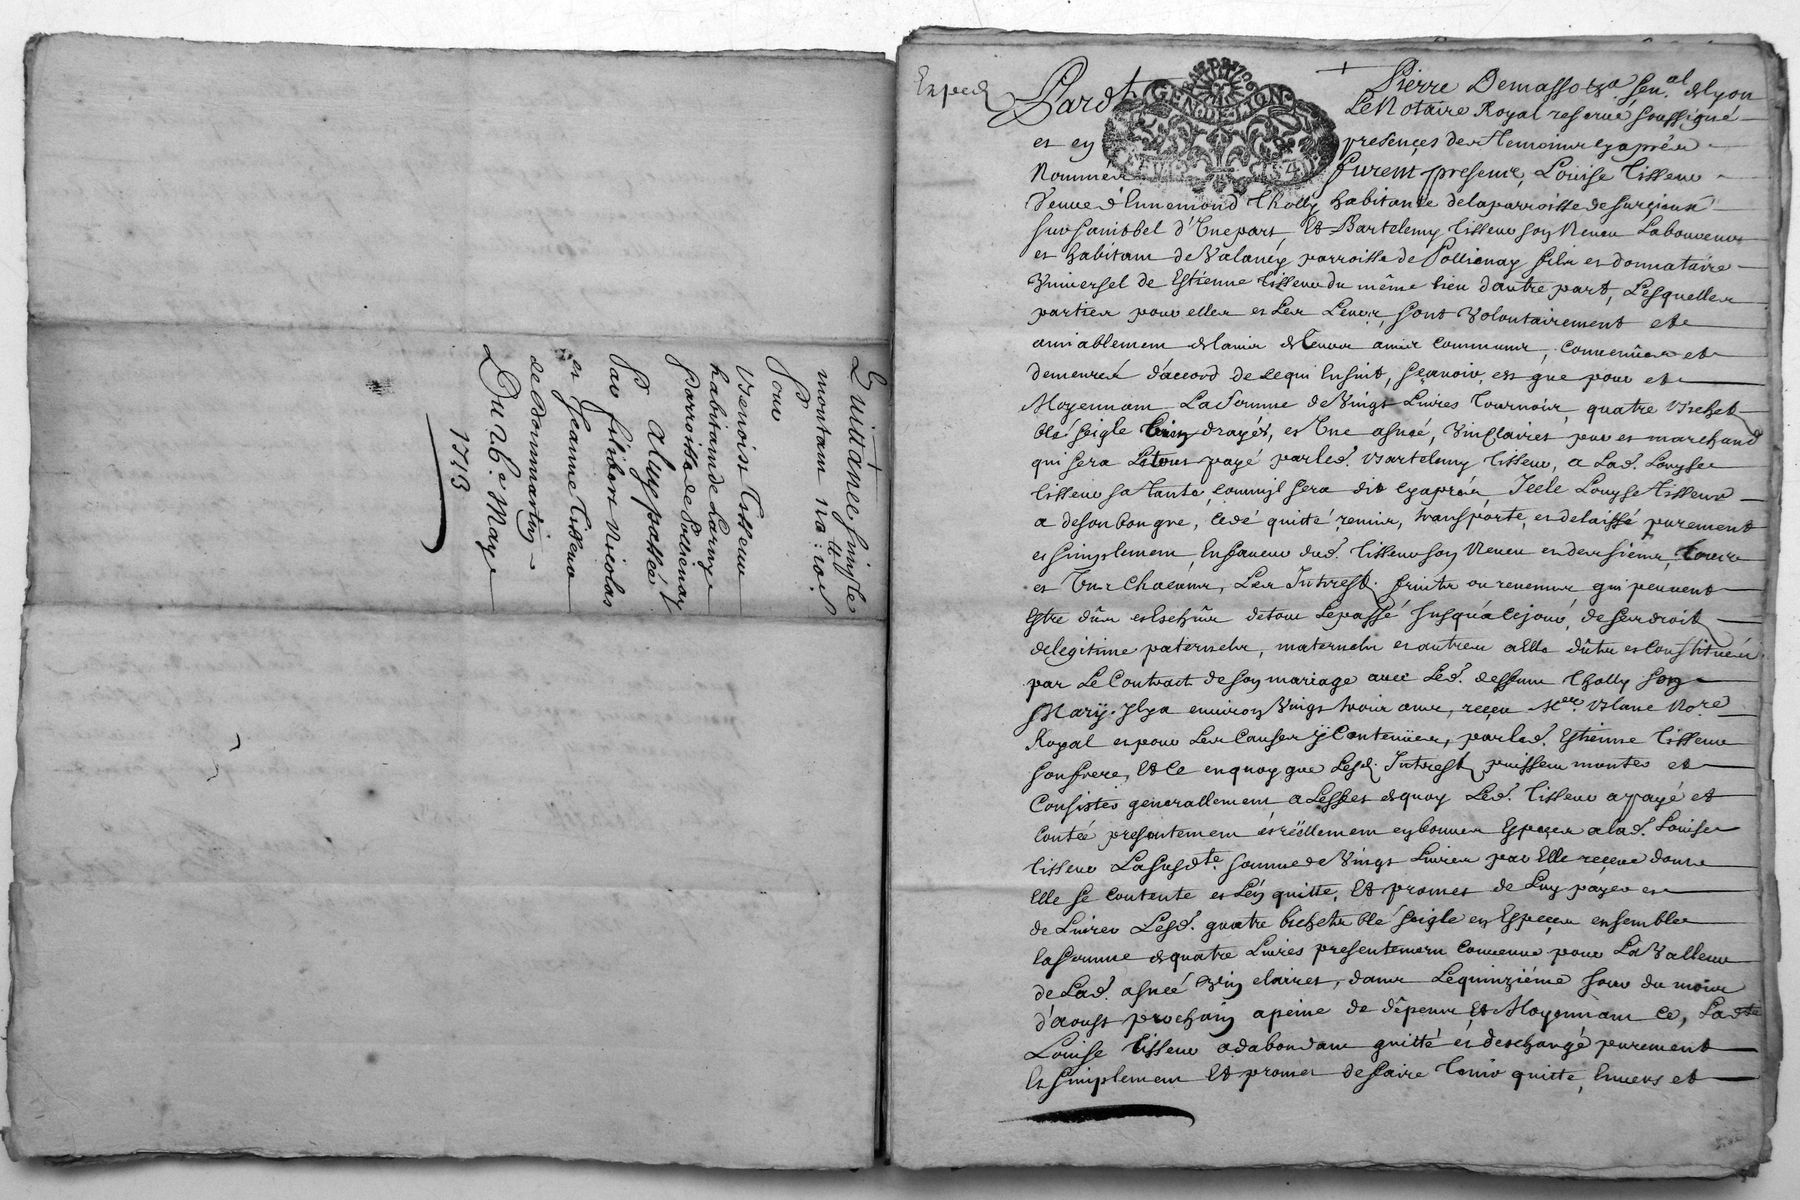 Quittance simple
montam 110:₶ 10.s
pour
Benoist Tisseur
habitand de Larny
Parroisse de Pollienay
a luy passée
Par filibert Nicolas
et Jeanne Tisseur
de dommartin
Du 26.e May
1713
Exped
GEN. DE LION
Pardt Pierre Demasso sen.al de Lyon
Le Notaire Royal reservé soussigné
et en presences des temoins cy aprés
Nommés furent presens, Louise Tisseur
Veuve d'Ennemond Tholly habitante de la parroisse de Surcieux
sur Sainbel d'Une part Et Bartelemy Tisseur son Neveu Laboureur
et habitant de Valancy parroisse de Pollienay fils et donnataire
Universel de Estienne Tisseur du même lieu dautre part, Lesquelles
parties pour elles et Les Leurs, sont volontairement et
amiablement de lavis de leurs amis communs, convenües et
demeurés d'accord de ce qui Ensuit, sçavoir, est que pour et
Moyennant La somme de Vingt Livres Tournois, quatre Bichets
blé seigle drayés, et Une asnée, Vin clairet pur et marchand
qui sera payé par led. Bartelemy Tisseur, a Lad. Louyse
Tisseur sa Tante, comm'il sera dit cy aprés, Icelle Louyse Tisseur
a de son bon gre, cedé quitté, remis, transporté, et delaissé purement
et simplement, En faveur dud. Tisseur son Neveu et des siens, tous
et Uns chacuns, Les Intrests fruits ou revenus qui peuvent
Estre dûs et Eschûs de tout Le passé jusqu'a ce jour, de ses droits
de legitime paternels, maternels et autres a Elle dûs et Constitués
par Le Contract de son mariage avec Led. deffunt Tholly son
Mary. Il y a environ Vingt trois ans, receu Me. Blanc No.re
Royal et pour Les Causes y Contenües, par led. Estienne Tisseur
son frere, Et Ce en quoy que Lesd. Intrests puissent monter et
Consister generallement a L'effet de quoy Led. Tisseur a payé et
Conté presentement et réellement en bonnes Especes a lad. Louise
Tisseur La susd.te somme de Vingt Livres par Elle receue dont
Elle se contente et L'en quitte, Et promet de Luy payer et
de Livrer Lesd. quatre bichets blé seigle en Espece ensemble
la somme de quatre Livres presentement Convenue pour La Valleur
de Lad. asnée Vin clairet, dans Le quinziéme jour du mois
d'aoust prochain a peine de dépens, Et Moyennant ce, Ladte
Louise Tisseur a d'abondant quitté et deschargé purement
Et simplement Et promet de faire tenir quitte, Envers et